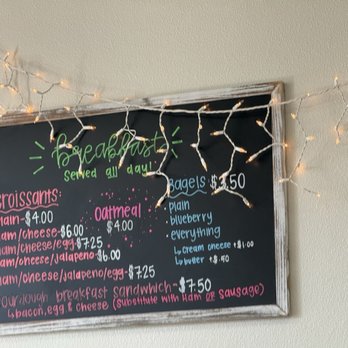 breakfast
Served all day!
Croissants:
Plain-$4.00
Ham/cheese-$6.00
Ham/cheese/egg-$7.25
Ham/cheese/jalapeño-$6.00
Ham/cheese/jalapeno/egg-$7.25
Oatmeal
$4.00
Bagels
plain
blueberry
everything
↳ cream cheese +$1.00
↳ butter +$.50
Sourdough breakfast sandwich-$7.50
↳ bacon, egg & cheese (Substitute with Ham or Sausage)